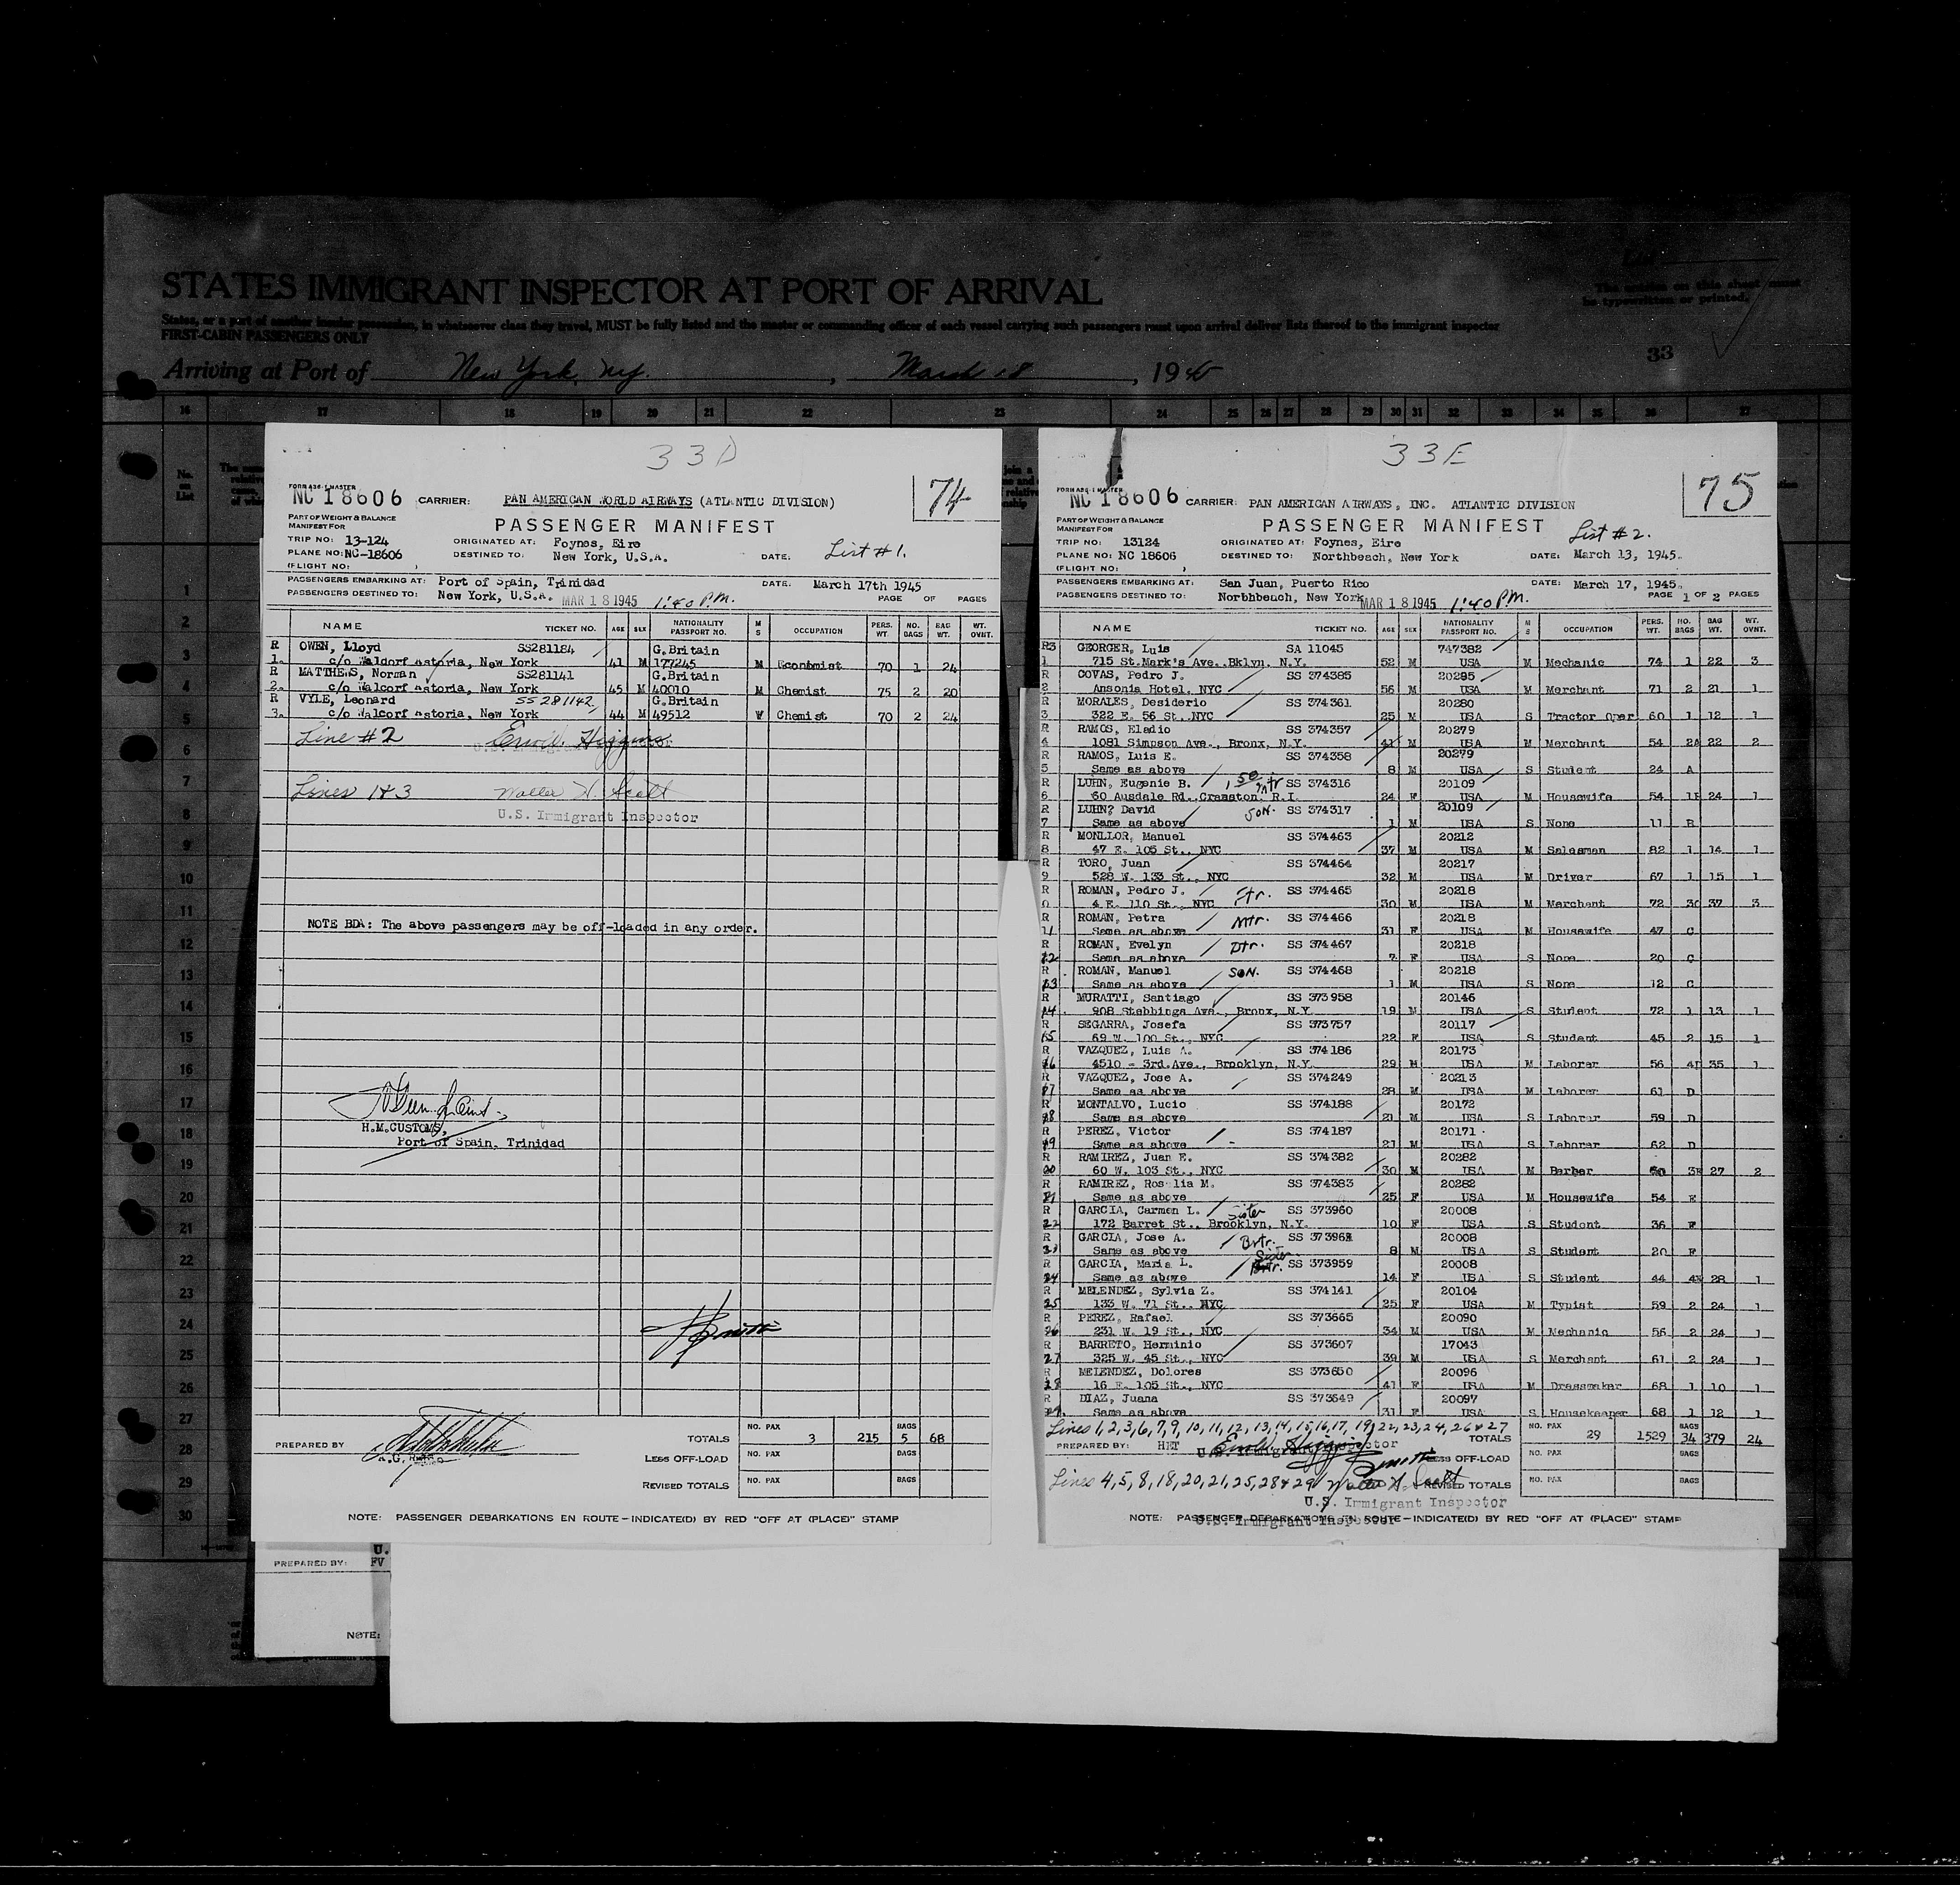 STATES IMMIGRANT INSPECTOR AT PORT OF ARRIVAL
The entries on this sheet must
be typewritten or printed.
States, or a part of another insular possession, in whatsoever class they travel, MUST be fully listed and the master or commanding officer of each vessel carrying such passengers must upon arrival deliver lists thereof to the immigrant inspector
FIRST-CABIN PASSENGERS ONLY
33
Arriving at Port of New York, NY. , March 18 , 1945
16 17 18 19 20 21 22 23 24 25 26 27 28 29 30 31 32 33 34 35 36 37
No. on List
1
2
3
4
5
6
7
8
9
10
11
12
13
14
15
16
17
18
19
20
21
22
23
24
25
26
27
28
29
30
33D
74
FORM A36-1 MASTER
NC 18606 CARRIER: PAN AMERICAN WORLD AIRWAYS (ATLANTIC DIVISION)
PART OF WEIGHT & BALANCE
MANIFEST FOR
PASSENGER MANIFEST
TRIP NO: 13-124 ORIGINATED AT: Foynes, Eire
List #1.
PLANE NO: NC-18606 DESTINED TO: New York, U.S.A. DATE:
(FLIGHT NO: )
PASSENGERS EMBARKING AT: Port of Spain, Trinidad DATE: March 17th 1945
PASSENGERS DESTINED TO: New York, U.S.A. MAR 18 1945 1:40 P.M. PAGE OF PAGES
NAME TICKET NO. AGE SEX NATIONALITY PASSPORT NO. M S OCCUPATION PERS. WT. NO. BAGS BAG WT. WT. OVNT.
R OWEN, Lloyd SS281184 G.Britain
1. c/o Waldorf Astoria, New York 41 M 177245 M Economist 70 1 24
R MATTHEWS, Norman SS281141 G.Britain
2. c/o Walcorf Astoria, New York 45 M 40010 M Chemist 75 2 20
R VYLE, Leonard SS 281142 G.Britain
3. c/o Walcorf Astoria, New York 44 M 49512 W Chemist 70 2 24
Line #2
Lines 1&3 Walter H. Scott
U.S. Immigrant Inspector
NOTE BDA: The above passengers may be off-loaded in any order.
H.M.CUSTOMS,
Port of Spain, Trinidad
PREPARED BY
TOTALS NO. PAX 3 215 BAGS 5 68
LESS OFF-LOAD NO. PAX BAGS
REVISED TOTALS NO. PAX BAGS
NOTE: PASSENGER DEBARKATIONS EN ROUTE—INDICATE(D) BY RED "OFF AT (PLACE)" STAMP
PREPARED BY: FV
NOTE:
33E
75
FORM A36-1 MASTER
NC 18606 CARRIER: PAN AMERICAN AIRWAYS, INC. ATLANTIC DIVISION
PART OF WEIGHT & BALANCE
MANIFEST FOR
PASSENGER MANIFEST
List #2.
TRIP NO: 13124 ORIGINATED AT: Foynes, Eire
PLANE NO: NC 18606 DESTINED TO: Northbeach, New York DATE: March 13, 1945.
(FLIGHT NO: )
PASSENGERS EMBARKING AT: San Juan, Puerto Rico DATE: March 17, 1945.
PASSENGERS DESTINED TO: Northbeach, New York MAR 18 1945 1:40 P.M. PAGE 1 OF 2 PAGES
NAME TICKET NO. AGE SEX NATIONALITY PASSPORT NO. M S OCCUPATION PERS. WT. NO. BAGS BAG WT. WT. OVNT.
R3 GEORGER, Luis SA 11045 747382
1 715 St.Mark's Ave. Bklyn, N.Y. 52 M USA M Mechanic 74 1 22 3
R COVAS, Pedro J. SS 374385 20295
2 Ansonia Hotel, NYC 56 M USA M Merchant 71 2 21 1
R MORALES, Desiderio SS 374361 20280
3 322 E. 56 St. NYC 25 M USA S Tractor Oper 60 1 12 1
R RAMOS, Eladio SS 374357 20279
4 1081 Simpson Ave., Bronx, N.Y. 41 M USA M Merchant 54 2A 22 2
R RAMOS, Luis E. SS 374358 20279
5 Same as above 8 M USA S Student 24 A
R LUHN, Eugenie B. SS 374316 20109
6 60 Ausdale Rd., Cranston, R.I. 24 F USA M Housewife 54 1B 24 1
R LUHN? David Son. SS 374317 20109
7 Same as above 1 M USA S None 11 B
R MONLLOR, Manuel SS 374463 20212
8 47 E. 105 St., NYC 37 M USA M Salesman 82 1 14 1
R TORO, Juan SS 374464 20217
9 528 W. 133 St., NYC 32 M USA M Driver 67 1 15 1
R ROMAN, Pedro J. Ftr. SS 374465 20218
0 4 E. 110 St., NYC 30 M USA M Merchant 72 3C 37 3
R ROMAN, Petra Mtr. SS 374466 20218
11 Same as above 31 F USA M Housewife 47 C
R ROMAN, Evelyn Dtr. SS 374467 20218
12 Same as above 7 F USA S None 20 C
R ROMAN, Manuel SON. SS 374468 20218
13 Same as above 1 M USA S None 12 C
R MURATTI, Santiago SS 373958 20146
14. 908 Stebbings Ave., Bronx, N.Y. 19 M USA S Student 72 1 13 1
R SEGARRA, Josefa SS 373757 20117
15 69 W. 100 St., NYC 22 F USA S Student 45 2 15 1
R VAZQUEZ, Luis A. SS 374186 20173
16 4510 - 3rd.Ave., Brooklyn, N.Y. 29 M USA M Laborer 56 4D 35 1
R VAZQUEZ, Jose A. SS 374249 20213
17 Same as above 28 M USA M Laborer 61 D
R MONTALVO, Lucio SS 374188 20172
18 Same as above 21 M USA S Laborer 59 D
R PEREZ, Victor SS 374187 20171
19 Same as above 21 M USA S Laborer 62 D
R RAMIREZ, Juan E. SS 374382 20282
20 60 W. 103 St., NYC 30 M USA M Barber 3E 27 2
R RAMIREZ, Rosalia M. SS 374383 20282
21 Same as above 25 F USA M Housewife 54 E
R GARCIA, Carmen L. Sister SS 373960 20008
22 172 Barret St., Brooklyn, N.Y. 10 F USA S Student 36 F
R GARCIA, Jose A. Brtr. SS 373961 20008
23 Same as above 8 M USA S Student 20 F
R GARCIA, Maria L. Sister SS 373959 20008
24 Same as above 14 F USA S Student 44 4F 28 1
R MELENDEZ, Sylvia Z. SS 374141 20104
25 133 W. 71 St., NYC 25 F USA M Typist 59 2 24 1
R PEREZ, Rafael SS 373665 20090
26 231 W. 19 St., NYC 34 M USA M Mechanic 56 2 24 1
R BARRETO, Herminio SS 373607 17043
27 325 W. 45 St., NYC 39 M USA S Merchant 61 2 24 1
R MELENDEZ, Dolores SS 373650 20096
28 16 E. 105 St., NYC 41 F USA M Dressmaker 68 1 10 1
R DIAZ, Juana SS 373649 20097
29. Same as above 31 F USA S Housekeeper 68 1 12 1
Lines 1,2,3,6,7,9,10,11,12,13,14,15,16,17,19,22,23,24,26&27
PREPARED BY: HET TOTALS NO. PAX 29 1529 BAGS 34 379 24
U.S. Immigrant Inspector
LESS OFF-LOAD NO. PAX BAGS
Lines 4,5,8,18,20,21,25,28&29 Walter H. Scott REVISED TOTALS NO. PAX BAGS
U.S. Immigrant Inspector
NOTE: PASSENGER DEBARKATIONS EN ROUTE—INDICATE(D) BY RED "OFF AT (PLACE)" STAMP
U.S. Immigrant Inspector